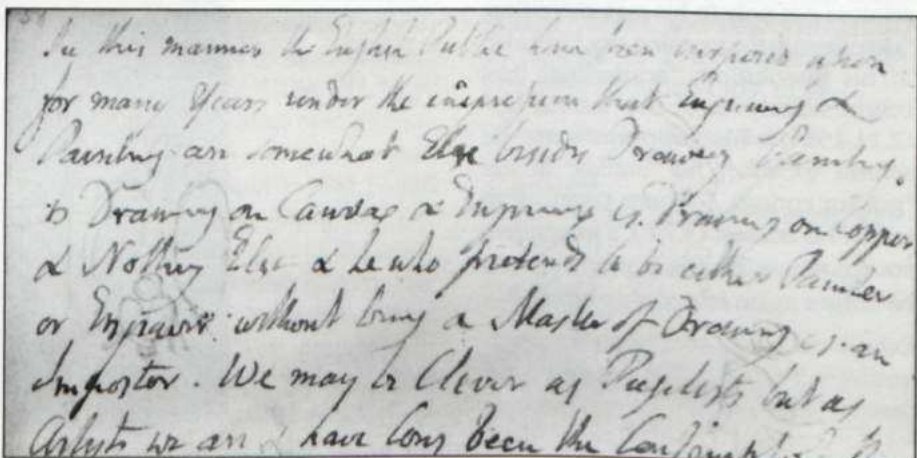 In this manner the English Public have been imposed upon
for many Years under the impression that Engraving &
Painting are somewhat Else besides Drawing Painting.
is Drawing on Canvas & Engraving is Drawing on Copper
& Nothing Else & he who pretends to be either Painter
or Engraver without being a Master of Drawing is an
Impostor. We may be Clever as Pugilists but as
Artists we are & have long been the Contempt of the